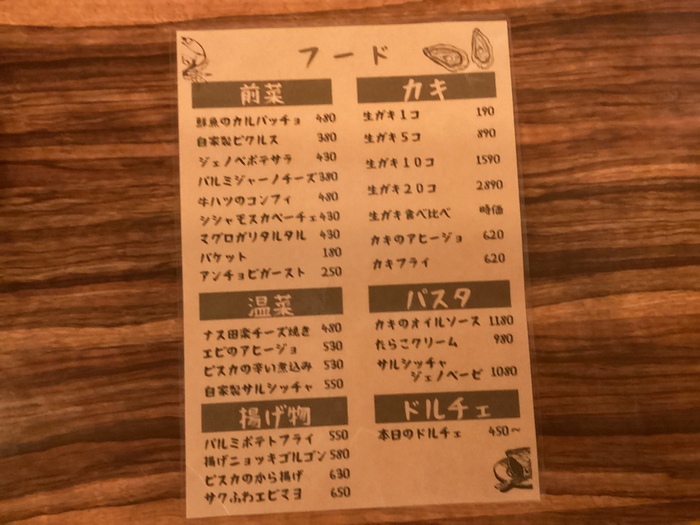 フード
前菜
鮮魚のカルパッチョ 480
自家製ピクルス 380
ジェノベポテサラ 430
パルミジャーノチーズ 380
牛ハツのコンフィ 480
シシャモスカペーチェ 430
マグロガリタルタル 430
バケット 180
アンチョビガースト 250
温菜
ナス田楽チーズ焼き 480
エビのアヒージョ 530
ピスカの辛い煮込み 530
自家製サルシッチャ 550
揚げ物
パルミポテトフライ 550
揚げニョッキゴルゴン 580
ピスカのから揚げ 630
サクふわエビマヨ 650
カキ
生ガキ1コ 190
生ガキ5コ 890
生ガキ10コ 1590
生ガキ20コ 2890
生ガキ食べ比べ 時価
カキのアヒージョ 620
カキフライ 620
パスタ
カキのオイルソース 1180
たらこクリーム 980
サルシッチャ
ジェノベーゼ 1080
ドルチェ
本日のドルチェ 450～